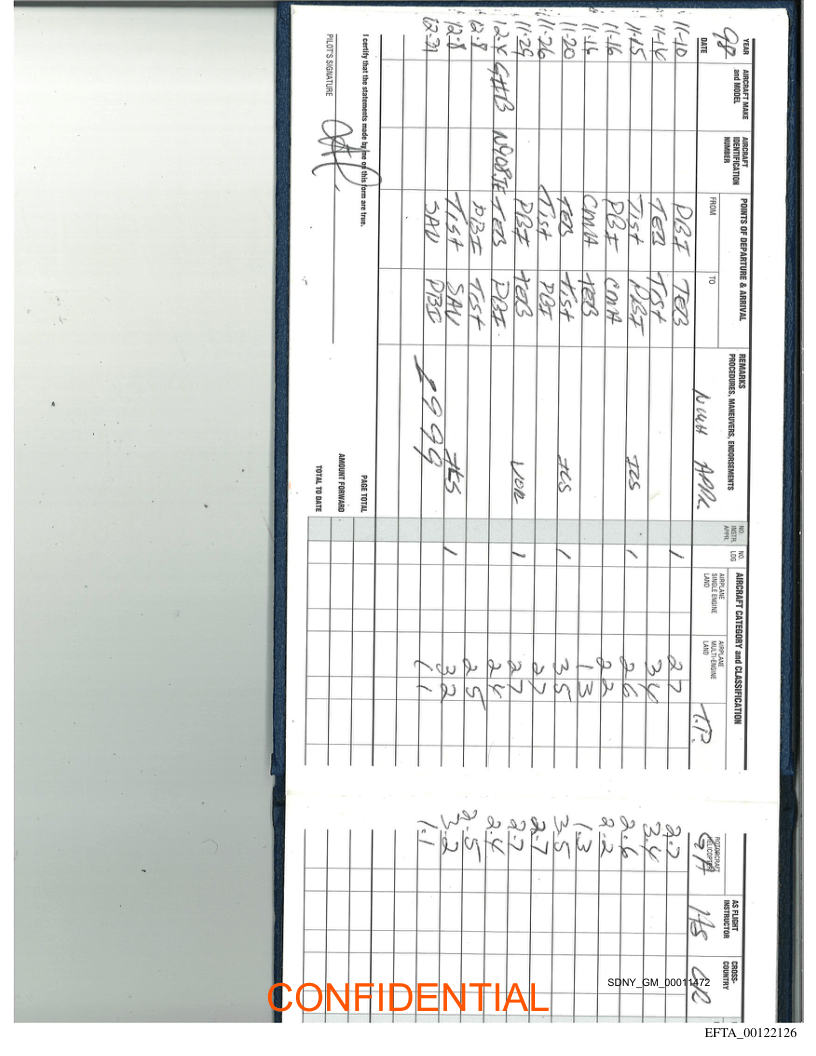 YEAR 98
DATE
AIRCRAFT MAKE and MODEL
AIRCRAFT IDENTIFICATION NUMBER
POINTS OF DEPARTURE & ARRIVAL
FROM
TO
REMARKS
PROCEDURES, MANEUVERS, ENDORSEMENTS
NO. INSTR. APPR.
NO. LDG
AIRCRAFT CATEGORY and CLASSIFICATION
AIRPLANE SINGLE ENGINE LAND
AIRPLANE MULTI-ENGINE LAND
T.P.
ROTORCRAFT HELICOPTER
AS FLIGHT INSTRUCTOR
CROSS-COUNTRY
11-10 PBI TEB APPR 1 2 7 2.7
11-14 TEB TIST 3 4 3.4
11-15 TIST PBI ILS 1 2 6 2.6
11-16 PBI CMH 2 2 2.2
11-16 CMH TEB 1 3 1.3
11-20 TEB TIST ILS 1 3 5 3.5
11-26 TIST PBI 2 7 2.7
11-29 PBI TEB VOR 1 2 7 2.7
12-4 N908JE TEB PBI 2 4 2.4
12-8 PBI TIST 2 5 2.5
12-8 TIST SAV ILS 1 3 2 3.2
12-31 SAV PBI 1 1 1.1
1999
I certify that the statements made by me on this form are true.
PILOT'S SIGNATURE
PAGE TOTAL
AMOUNT FORWARD
TOTAL TO DATE
SDNY_GM_00011472
CONFIDENTIAL
EFTA_00122126